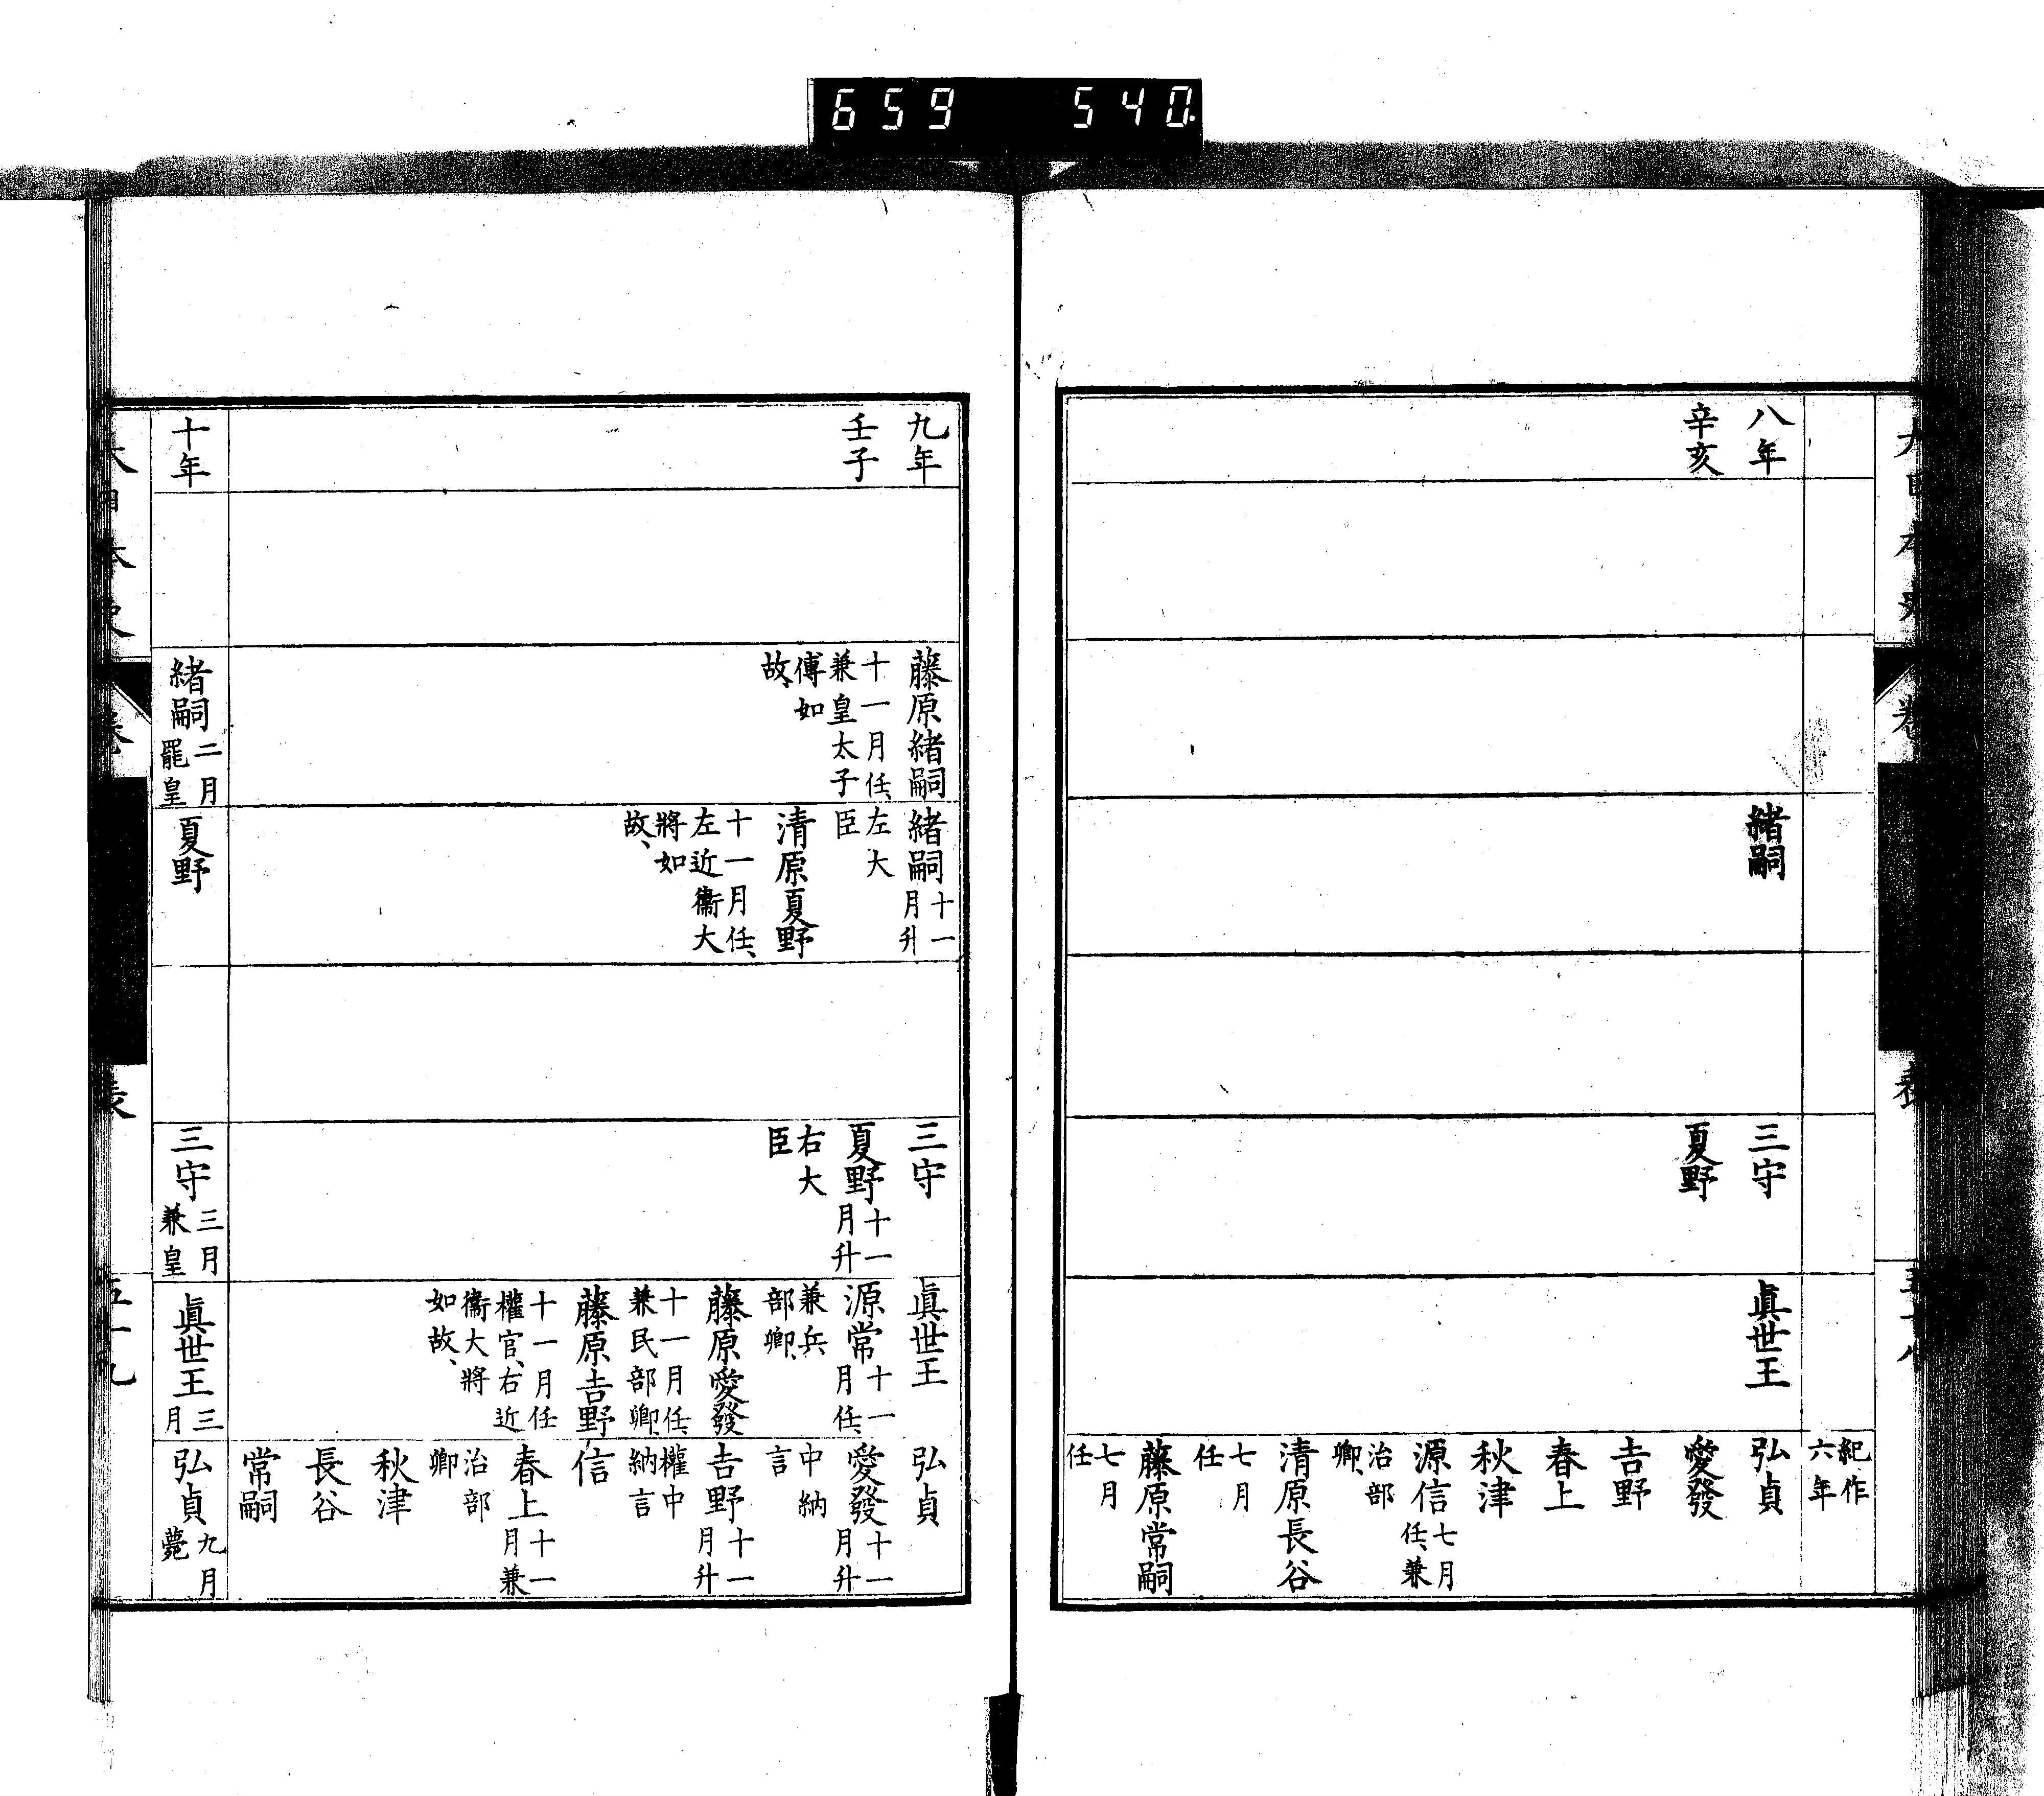 659 540
紀作
六年
八年
辛亥
緒嗣
三守
夏野
眞世王
弘貞
愛發
吉野
春上
秋津
源信七月
任、兼
治部
卿、
清原長谷
七月
任
藤原常嗣
七月
任
九年
壬子
藤原緒嗣
十一月任、
兼皇太子
傅如
故、
緒嗣十一
月升
左大
臣
清原夏野
十一月任、
左近衞大
將如
故、
三守
夏野十一
月升
右大
臣
眞世王
源常十一
月任、
兼兵
部卿、
藤原愛發
十一月任、
兼民部卿、
藤原吉野
十一月任
權官、右近
衞大將
如故、
弘貞
愛發十一
月升
中納
言
吉野十一
月升
權中
納言
信
春上十一
月兼
治部
卿
秋津
長谷
常嗣
十年
緒嗣二月
罷皇
夏野
三守三月
兼皇
眞世王三
月
弘貞九月
薨